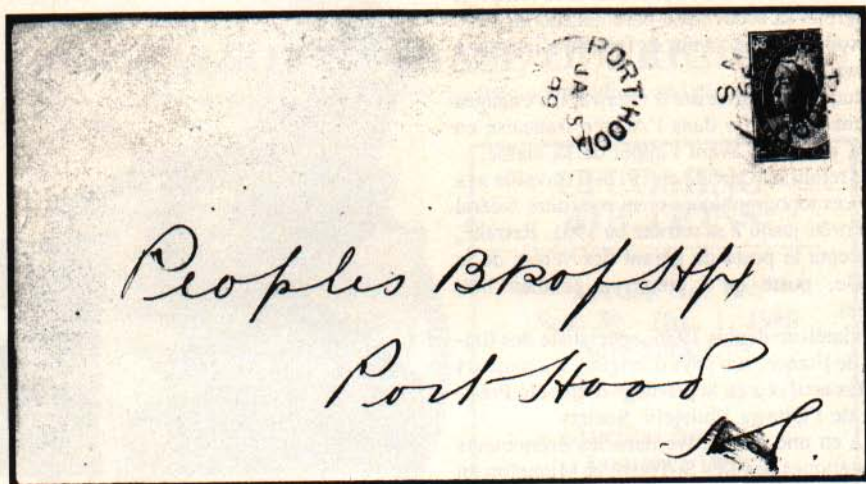 PORT HOOD
JA 5
99
Peoples Bk of Hfx
Port Hood
N.S.